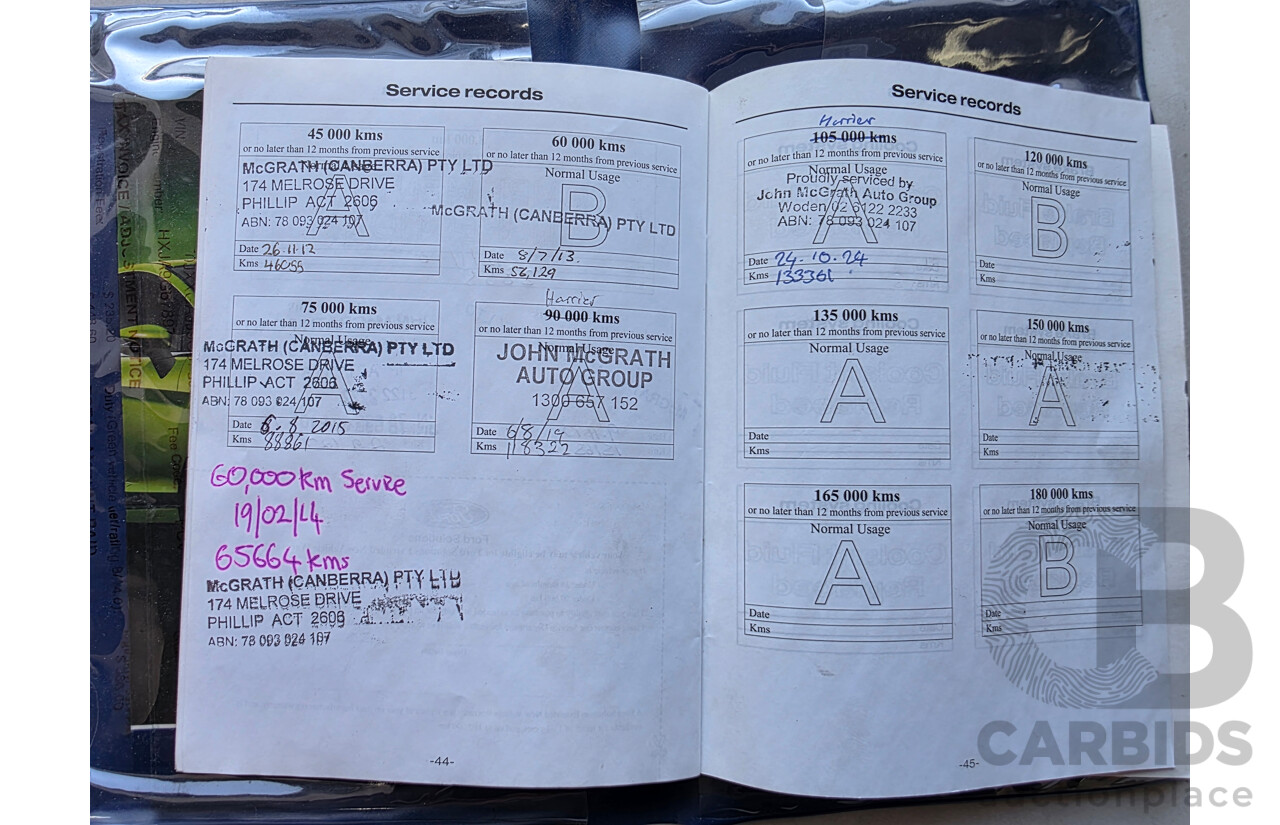 Service records
45 000 kms
or no later than 12 months from previous service
Normal Usage
McGRATH (CANBERRA) PTY LTD
174 MELROSE DRIVE
PHILLIP ACT 2606
ABN: 78 093 024 107
A
Date 26.11.12
Kms 46055
60 000 kms
or no later than 12 months from previous service
Normal Usage
B
McGRATH (CANBERRA) PTY LTD
Date 8/7/13.
Kms 56,129
75 000 kms
or no later than 12 months from previous service
Normal Usage
McGRATH (CANBERRA) PTY LTD
174 MELROSE DRIVE
PHILLIP ACT 2606
ABN: 78 093 024 107
A
Date 6.8.2015
Kms 88861
Harrier
90 000 kms
or no later than 12 months from previous service
Normal Usage
JOHN McGRATH
AUTO GROUP
1300 657 152
A
Date 6/8/19
Kms 118322
60,000km Service
19/02/14
65664kms
McGRATH (CANBERRA) PTY LTD
174 MELROSE DRIVE
PHILLIP ACT 2606
ABN: 78 093 024 107
-44-
Service records
Harrier
105 000 kms
or no later than 12 months from previous service
Normal Usage
Proudly serviced by
John McGrath Auto Group
Woden/02 6122 2233
ABN: 78 093 024 107
A
Date 24.10.24
Kms 133361
120 000 kms
or no later than 12 months from previous service
Normal Usage
B
Date
Kms
135 000 kms
or no later than 12 months from previous service
Normal Usage
A
Date
Kms
150 000 kms
or no later than 12 months from previous service
Normal Usage
A
Date
Kms
165 000 kms
or no later than 12 months from previous service
Normal Usage
A
Date
Kms
180 000 kms
or no later than 12 months from previous service
Normal Usage
B
Date
Kms
-45-
CARBIDS
auctionplace